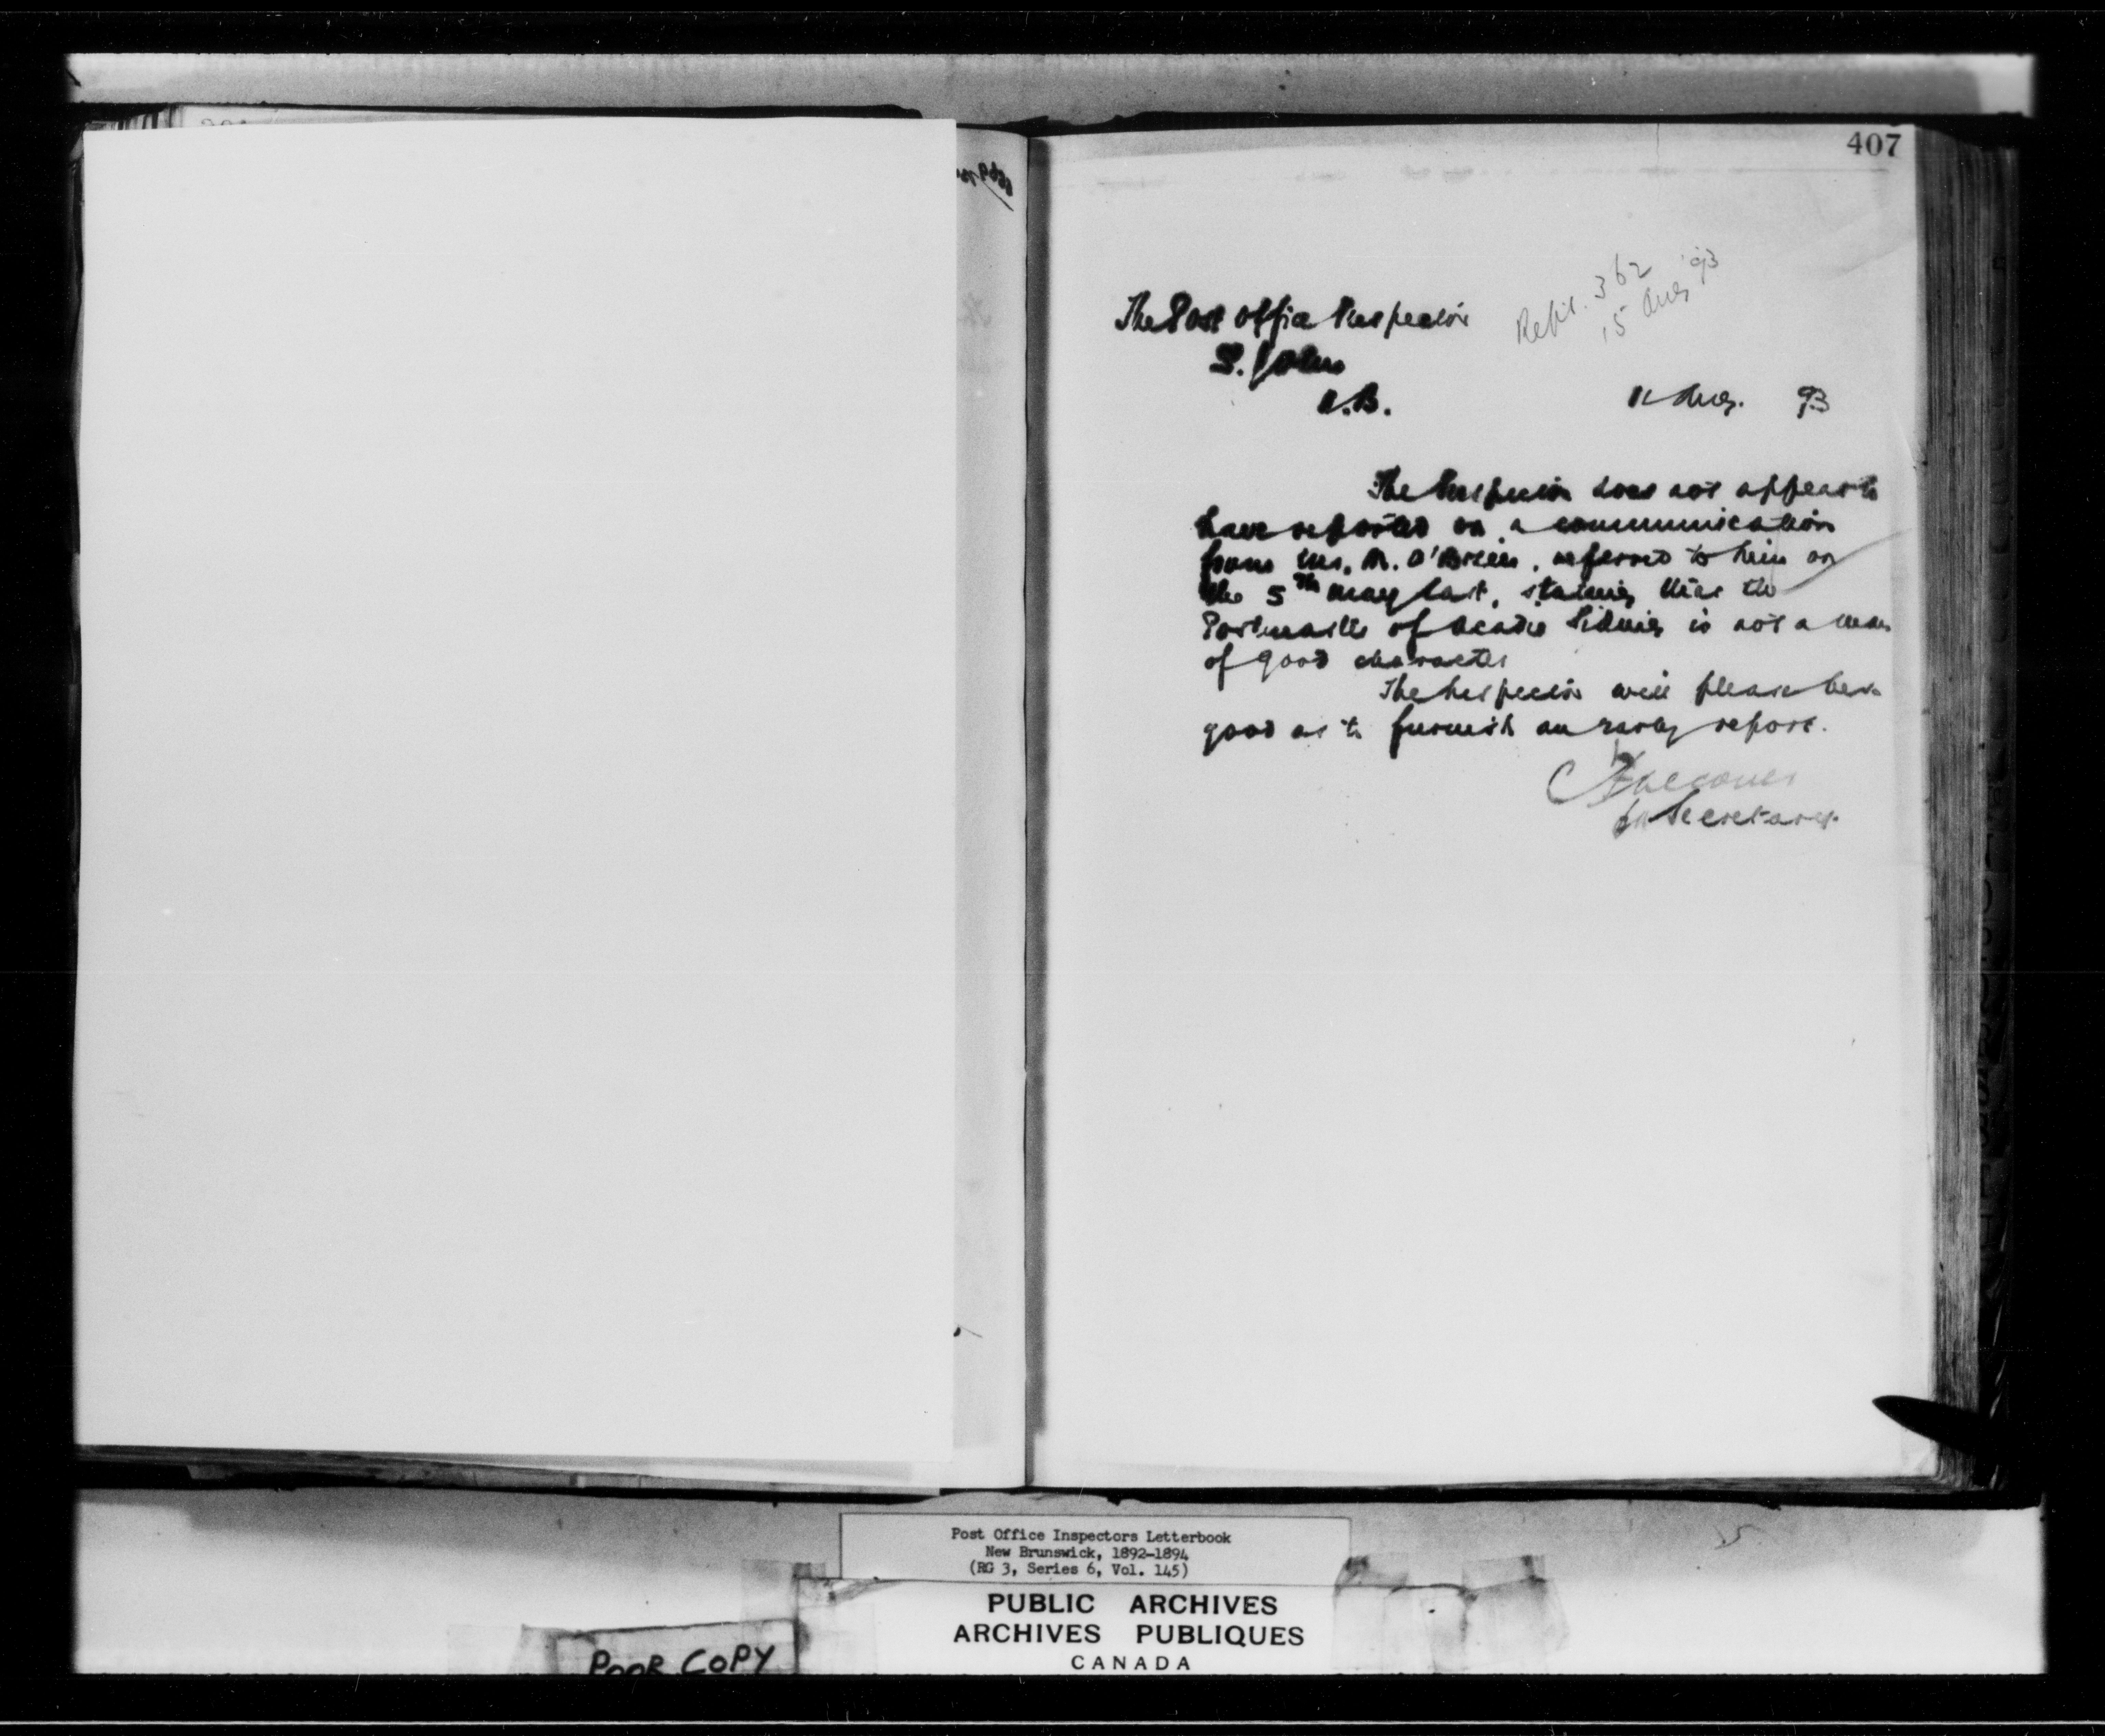 407
Repd. 362
15 Aug '93
The Post Office Inspector
St. John
N.B.
11 Aug. 93
The Inspector does not appear to
have reported on a communication
from Mr. R. O'Brien, referred to him on
the 5th May last, stating that the
Postmaster of Acadie Siding is not a man
of good character
The Inspector will please be so
good as to furnish an early report.
for Secretary.
Post Office Inspectors Letterbook
New Brunswick, 1892-1894
(RG 3, Series 6, Vol. 145)
PUBLIC ARCHIVES
ARCHIVES PUBLIQUES
CANADA
POOR COPY